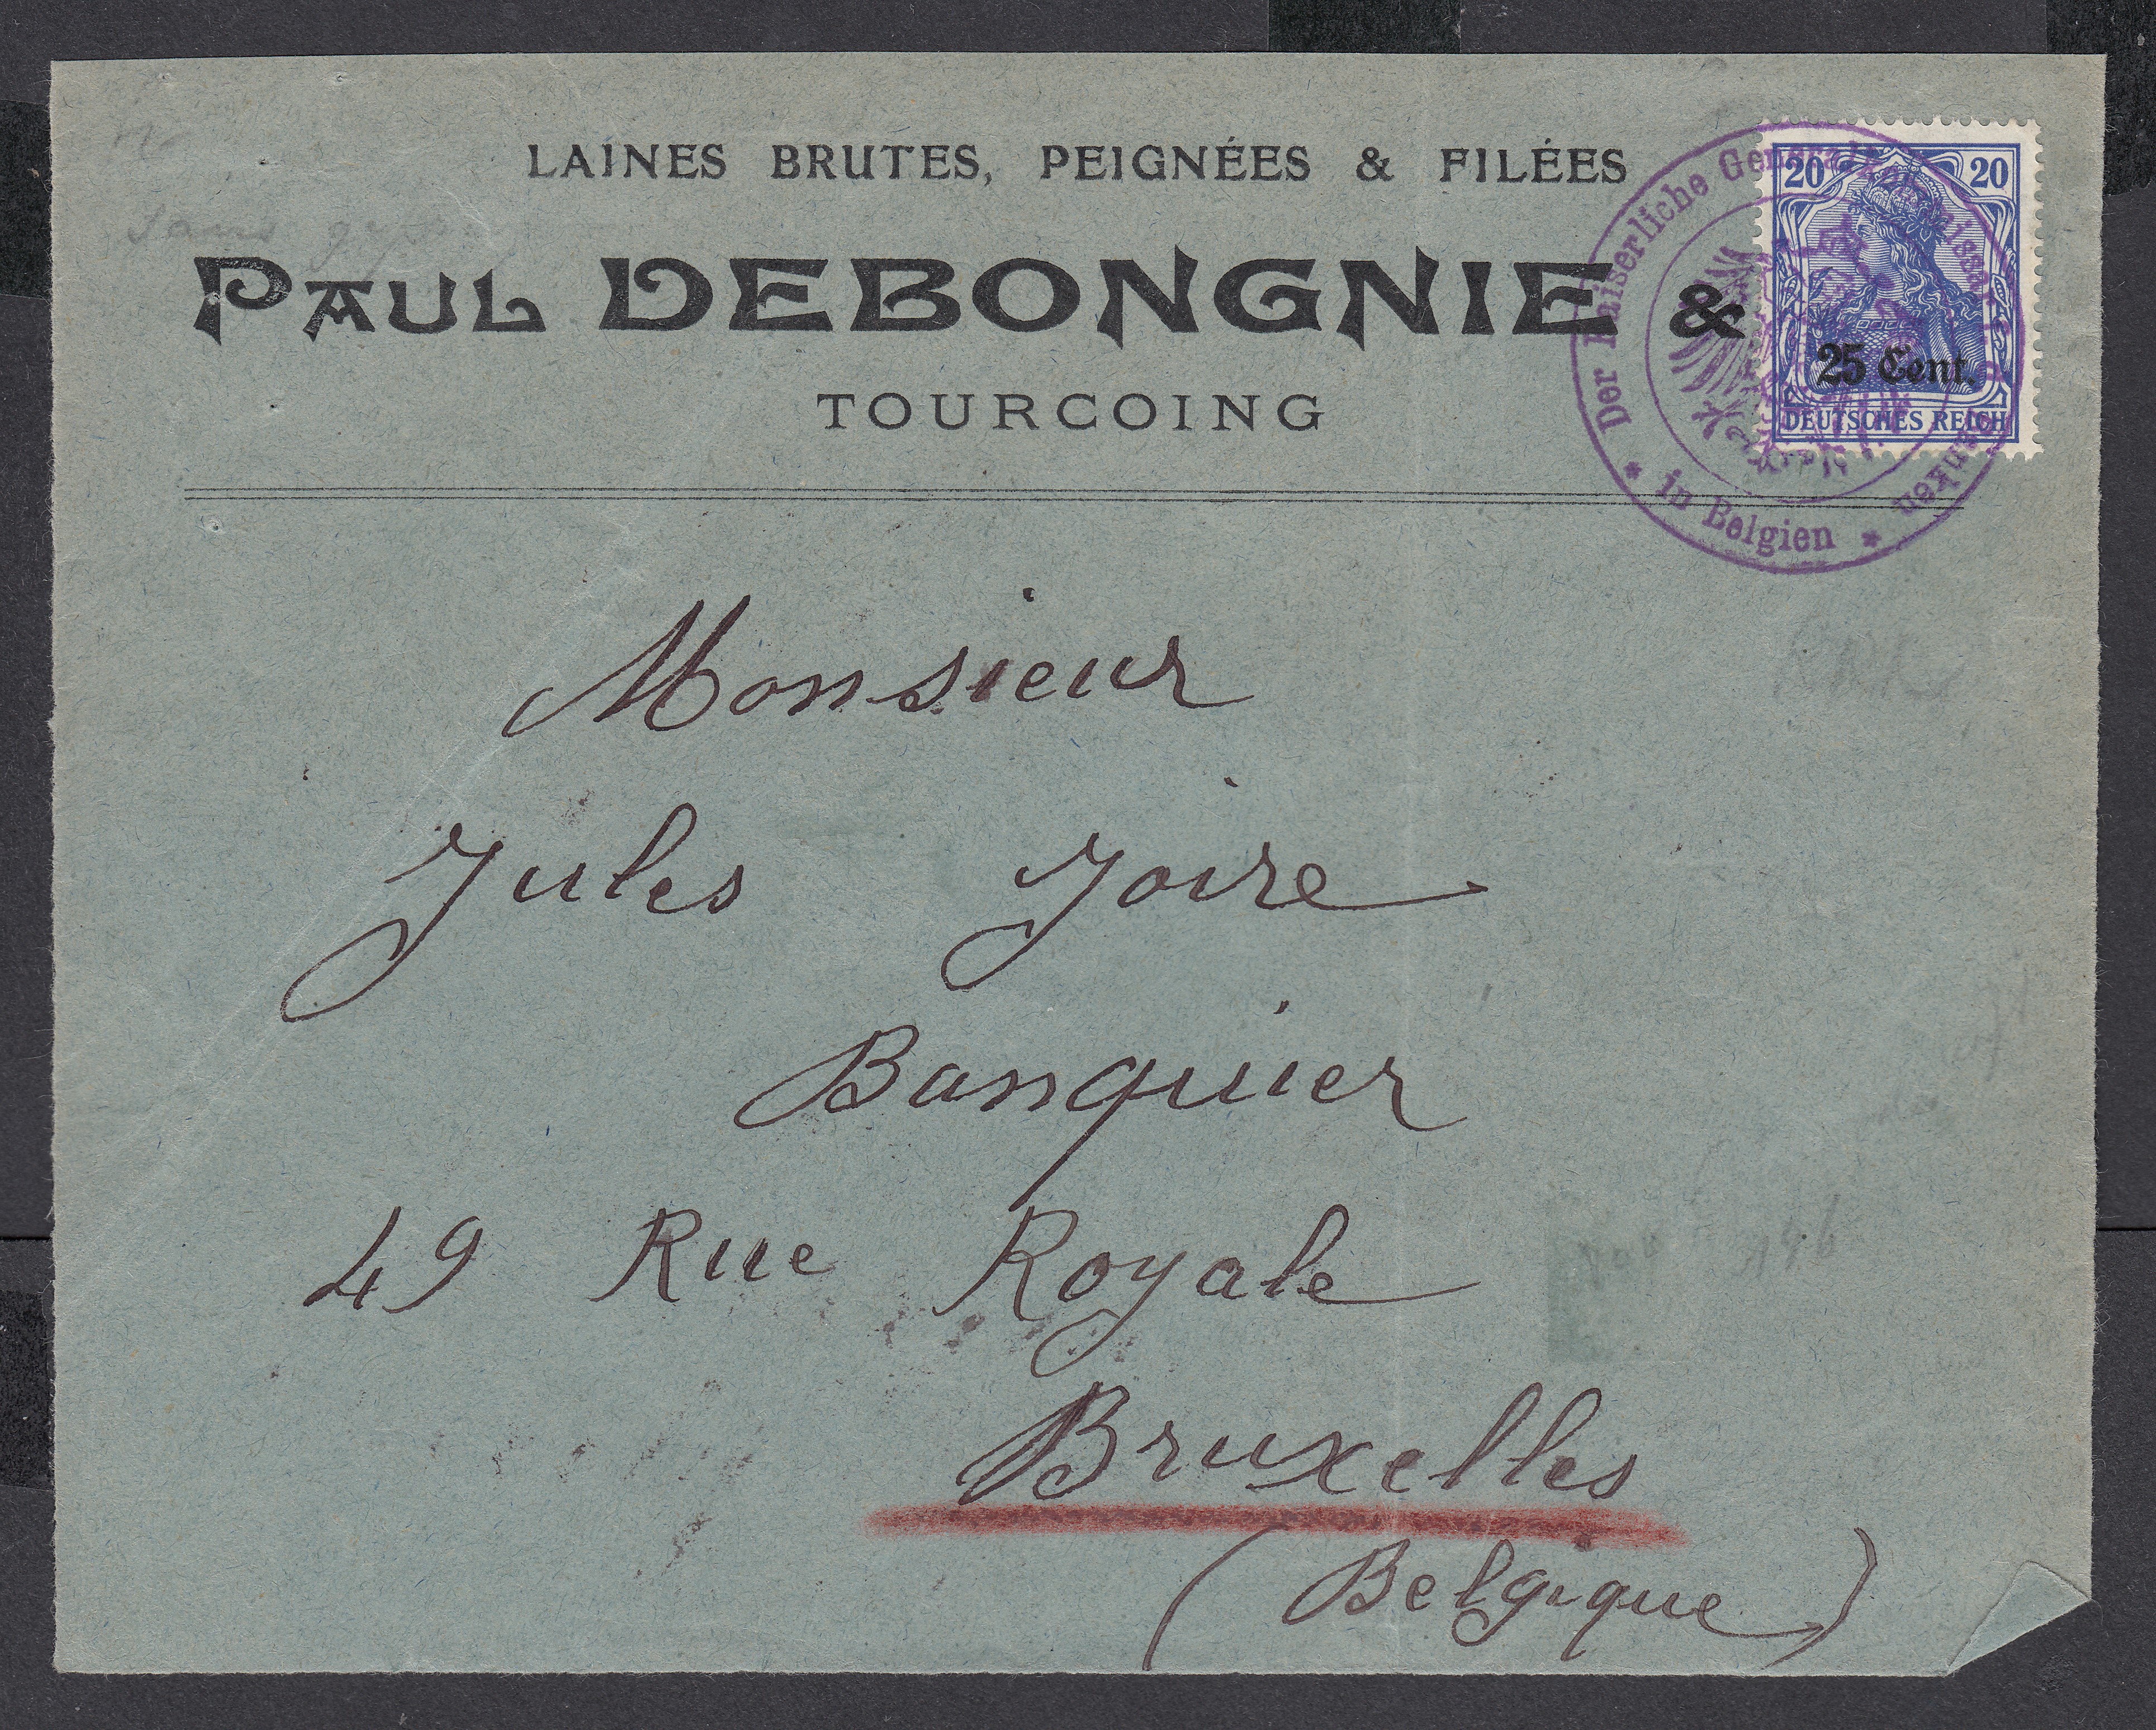 LAINES BRUTES, PEIGNÉES & FILÉES
PAUL DEBONGNIE &
TOURCOING
20 20
25 Cent.
DEUTSCHES REICH
Der Kaiserliche General
in Belgien
sans
Monsieur
Jules Joire
Banquier
49 Rue Royale
Bruxelles
(Belgique)